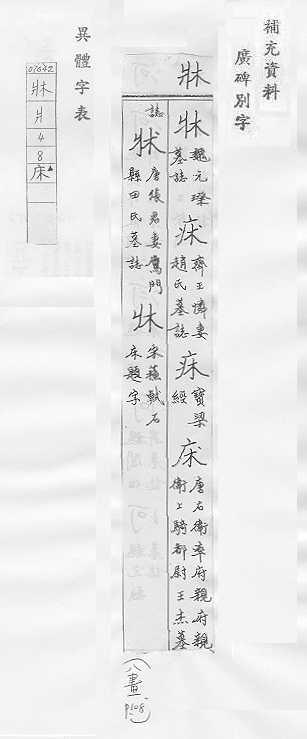 補充資料
廣碑別字
牀
牀 魏元璨墓誌
疾 齊王憐妻趙氏墓誌
床 寶梁經
床 唐右衛率府親府親衛上騎都尉王杰墓誌
牀 唐張君妻鴈門縣田氏墓誌
牀 宋蘇軾石床題字
(八畫 P108)
異體字表
01642
牀
爿
4
8
床▲